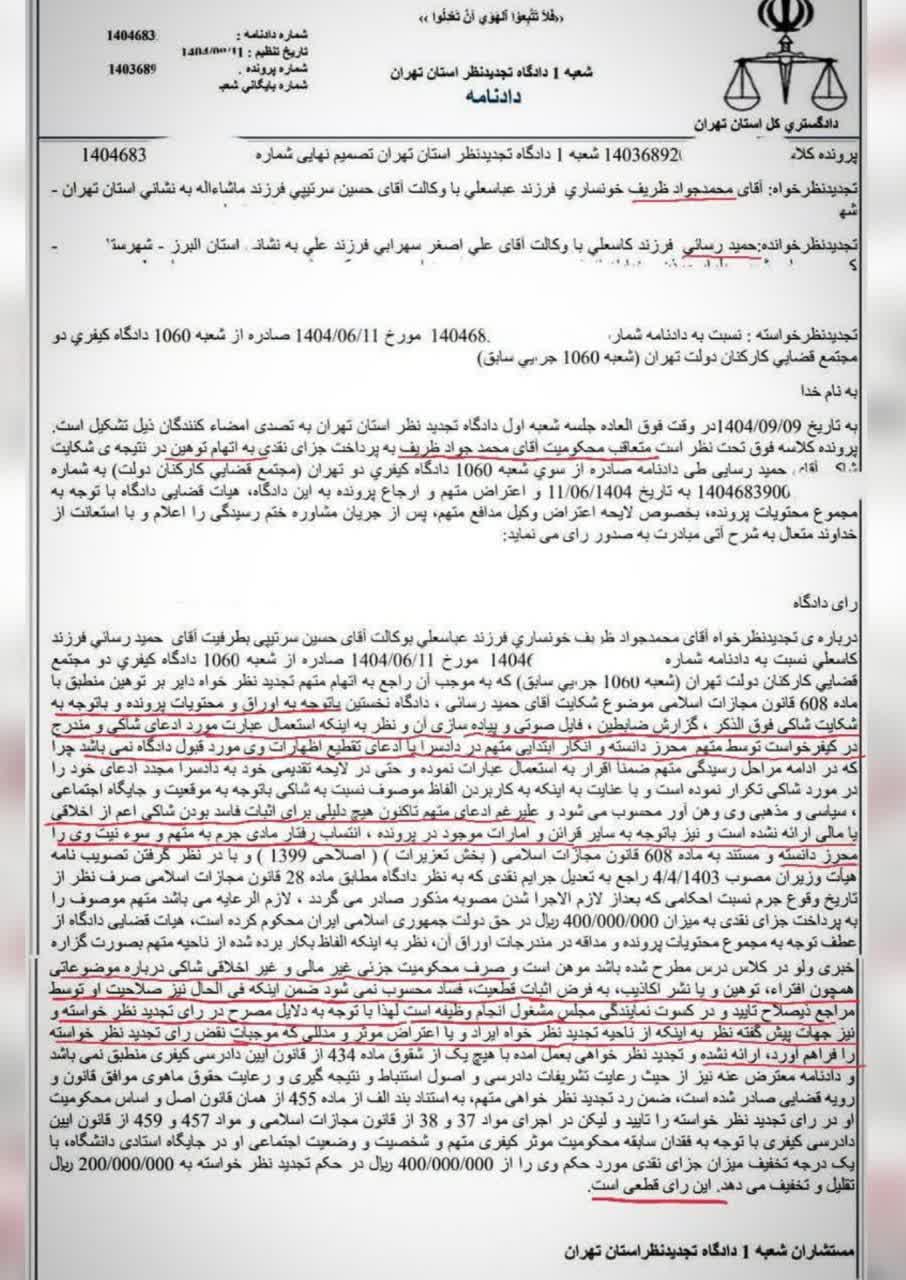 «فَلا تَتَّبِعُوا الْهَوي أَنْ تَعْدِلُوا»
شماره دادنامه : 1404683
تاریخ تنظیم :
شماره پرونده : 1403689
شماره بایگانی شعبه
شعبه 1 دادگاه تجدیدنظر استان تهران
دادنامه
دادگستري کل استان تهران
پرونده کلاسه 14036892 شعبه 1 دادگاه تجدیدنظر استان تهران تصمیم نهایی شماره 1404683
تجدیدنظرخواه: آقای محمدجواد ظریف خونساري فرزند عباسعلي با وکالت آقای حسین سرتیپي فرزند ماشاءاله به نشانی استان تهران -
شه
تجدیدنظرخوانده:حمید رسائي فرزند کاسعلي با وکالت آقای علي اصغر سهرابي فرزند علي به نشانی استان البرز - شهرست -
تجدیدنظرخواسته : نسبت به دادنامه شماره 140468 مورخ 1404/06/11 صادره از شعبه 1060 دادگاه کیفري دو
مجتمع قضایي کارکنان دولت تهران (شعبه 1060 جزیي سابق)
به نام خدا
به تاریخ 1404/09/09در وقت فوق العاده جلسه شعبه اول دادگاه تجدید نظر استان تهران به تصدی امضاء کنندگان ذیل تشکیل است.
پرونده کلاسه فوق تحت نظر است متعاقب محکومیت آقای محمد جواد ظریف به پرداخت جزای نقدی به اتهام توهین در نتیجه ی شکایت
شاکی آقای حمید رسایی طی دادنامه صادره از سوي شعبه 1060 دادگاه کیفري دو تهران (مجتمع قضائی کارکنان دولت) به شماره
1404683900 به تاریخ 11/06/1404 و اعتراض متهم و ارجاع پرونده به این دادگاه، هیات قضایی دادگاه با توجه به
مجموع محتویات پرونده، بخصوص لایحه اعتراض وکیل مدافع متهم، پس از جریان مشاوره ختم رسیدگی را اعلام و با استعانت از
خداوند متعال به شرح آتی مبادرت به صدور رای می نماید:
رای دادگاه
درباره ی تجدیدنظرخواه آقای محمدجواد ظریف خونساري فرزند عباسعلي بوکالت آقای حسین سرتیپی بطرفیت آقای حمید رسائي فرزند
کاسعلي نسبت به دادنامه شماره 14046 مورخ 1404/06/11 صادره از شعبه 1060 دادگاه کیفري دو مجتمع
قضایي کارکنان دولت تهران (شعبه 1060 جزیي سابق) که به موجب آن راجع به اتهام متهم تجدید نظر خواه دایر بر توهین منطبق با
ماده 608 قانون مجازات اسلامی موضوع شکایت آقای حمید رسائی ، دادگاه نخستین باتوجه به اوراق و محتویات پرونده و باتوجه به
شکایت شاکی فوق الذکر ، گزارش ضابطین ، فایل صوتی و پیاده سازی آن و نظر به اینکه استعمال عبارت مورد ادعای شاکی و مندرج
در کیفرخواست توسط متهم محرز دانسته و انکار ابتدایی متهم در دادسرا با ادعای تقطیع اظهارات وی مورد قبول دادگاه نمی باشد چرا
که در ادامه مراحل رسیدگی متهم ضمناً اقرار به استعمال عبارات نموده و حتی در لایحه تقدیمی خود به دادسرا مجدد ادعای خود را
در مورد شاکی تکرار نموده است و با عنایت به اینکه به کاربردن الفاظ موصوف نسبت به شاکی باتوجه به موقعیت و جایگاه اجتماعی
، سیاسی و مذهبی وی وهن آور محسوب می شود و علیرغم ادعای متهم تاکنون هیچ دلیلی برای اثبات فاسد بودن شاکی اعم از اخلاقی
یا مالی ارائه نشده است و نیز باتوجه به سایر قرائن و امارات موجود در پرونده ، انتساب رفتار مادی جرم به متهم و سوء نیت وی را
محرز دانسته و مستند به ماده 608 قانون مجازات اسلامی ( بخش تعزیرات ) ( اصلاحی 1399 ) و با در نظر گرفتن تصویب نامه
هیأت وزیران مصوب 4/4/1403 راجع به تعدیل جرایم نقدی که به نظر دادگاه مطابق ماده 28 قانون مجازات اسلامی صرف نظر از
تاریخ وقوع جرم نسبت احکامی که بعداز لازم الاجرا شدن مصوبه مذکور صادر می گردد ، لازم الرعایه می باشد متهم موصوف را
به پرداخت جزای نقدی به میزان 400/000/000 ریال در حق دولت جمهوری اسلامی ایران محکوم کرده است، هیات قضایی دادگاه از
عطف توجه به مجموع محتویات پرونده و مداقه در مندرجات اوراق آن، نظر به اینکه الفاظ بکار برده شده از ناحیه متهم بصورت گزاره
خبری ولو در کلاس درس مطرح شده باشد موهن است و صرف محکومیت جزئی غیر مالی و غیر اخلاقی شاکی درباره موضوعاتی
همچون افتراء، توهین و یا نشر اکاذیب، به فرض اثبات قطعیت، فساد محسوب نمی شود ضمن اینکه فی الحال نیز صلاحیت او توسط
مراجع ذیصلاح تایید و در کسوت نمایندگی مجلس مشغول انجام وظیفه است لهذا با توجه به دلایل مصرح در رای تجدید نظر خواسته و
نیز جهات پیش گفته نظر به اینکه از ناحیه تجدید نظر خواه ایراد و یا اعتراض موثر و مدللی که موجبات نقض رای تجدید نظر خواسته
را فراهم آورد، ارائه نشده و تجدید نظر خواهی بعمل آمده با هیچ یک از شقوق ماده 434 از قانون آیین دادرسی کیفری منطبق نمی باشد
و دادنامه معترض عنه نیز از حیث رعایت تشریفات دادرسی و اصول استنباط و نتیجه گیری و رعایت حقوق ماهوی موافق قانون و
رویه قضایی صادر شده است، ضمن رد تجدید نظر خواهی متهم، به استناد بند الف از ماده 455 از همان قانون اصل و اساس محکومیت
او در رای تجدید نظر خواسته را تایید و لیکن در اجرای مواد 37 و 38 از قانون مجازات اسلامی و مواد 457 و 459 از قانون ایین
دادرسی کیفری با توجه به فقدان سابقه محکومیت موثر کیفری متهم و شخصیت و وضعیت اجتماعی او در جایگاه استادی دانشگاه، با
یک درجه تخفیف میزان جزای نقدی مورد حکم وی را از 400/000/000 ریال در حکم تجدید نظر خواسته به 200/000/000 ریال
تقلیل و تخفیف می دهد. این رای قطعی است.
مستشاران شعبه 1 دادگاه تجدیدنظراستان تهران